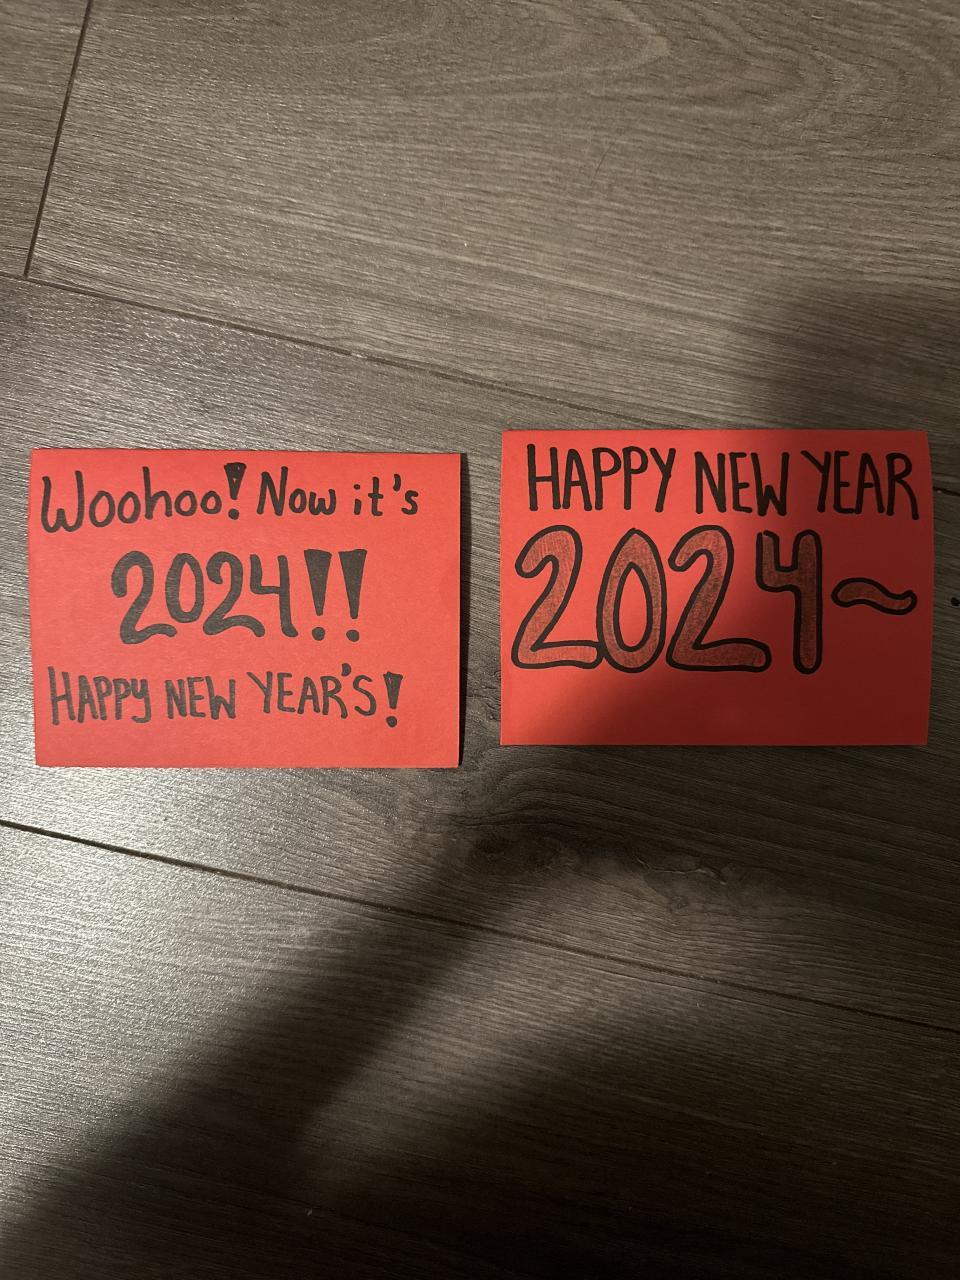 Woohoo! Now it's
2024!!
HAPPY NEW YEAR'S!
HAPPY NEW YEAR
2024~